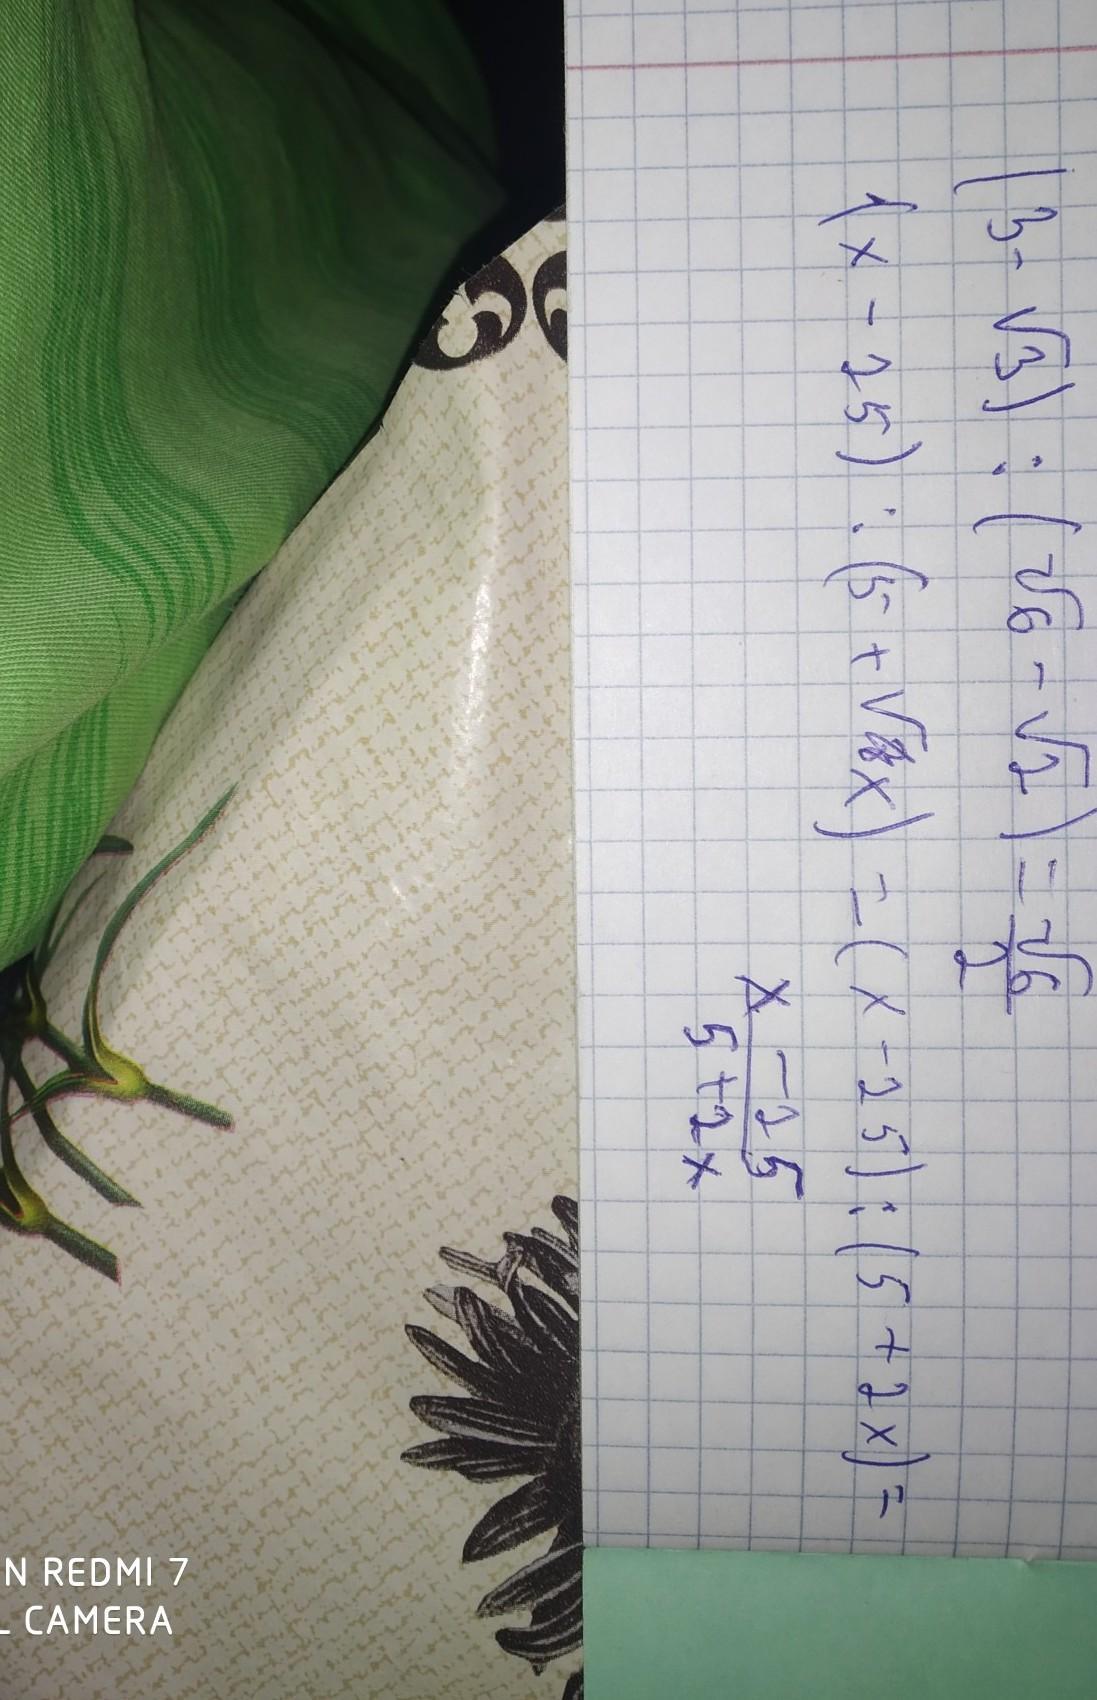 (3-√3) : (√6-√2) = √6/2
(x-25) : (5+√x) = (x-25) : (5+2x) =
x-25
5+2x
N REDMI 7
L CAMERA